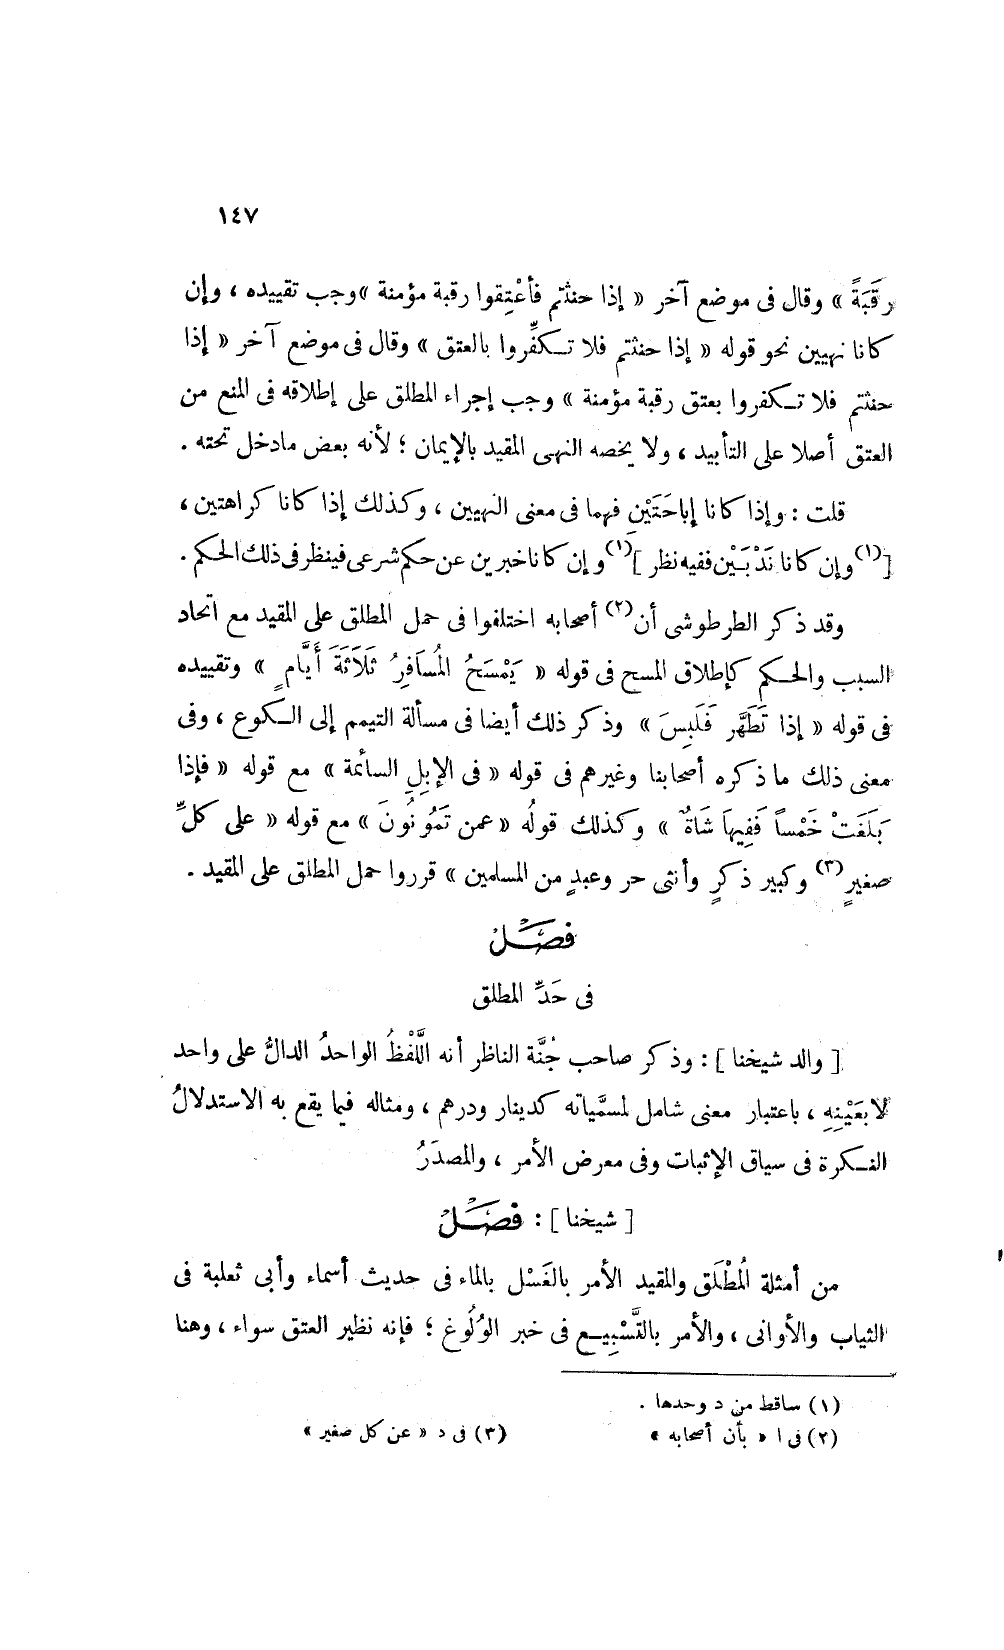 ١٤٧
رَقَبَةً » وقال فى موضع آخر « إذا حنثتم فأعْتِقوا رقبة مؤمنة » وجب تقييده ، وإن
كانا نهيين نحو قوله « إذا حنثتم فلا تكفِّروا بالعتق » وقال فى موضع آخر « إذا
حنثتم فلا تكفروا بعتق رقبة مؤمنة » وجب إجراء المطلق على إطلاقه فى المنع من
العتق أصلا على التأبيد ، ولا يخصه النهى المقيد بالإيمان ؛ لأنه بعض مادخل تحته .
قلت : وإذا كانا إباحَتَيْنِ فهما فى معنى النهيين ، وكذلك إذا كانا كراهتين ،
[(١) وإن كانا نَدْبَيْن ففيه نظر ](١) وإن كانا خبرين عن حكم شرعى فينظر فى ذلك الحكم .
وقد ذكر الطرطوشى أن(٢) أصحابه اختلفوا فى حمل المطلق على المقيد مع اتحاد
السبب والحكم كإطلاق المسح فى قوله « يَمْسَحُ المُسَافِرُ ثَلَاثَةَ أَيَّامٍ » وتقييده
فى قوله « إذا تَطَهَّر فَلَبِسَ » وذكر ذلك أيضا فى مسألة التيمم إلى الكوع ، وفى
معنى ذلك ما ذكره أصحابنا وغيرهم فى قوله « فى الإبلِ السائمة » مع قوله « فإذا
بَلَغَتْ خَمْساً فَفِيهَا شَاةٌ » وكذلك قولُه « عمن تَمُونُونَ » مع قوله « على كلِّ
صغيرٍ (٣) وكبير ذكرٍ وأنثى حر وعبدٍ من المسلمين » قرروا حمل المطلق على المقيد .
فَصْلٌ
فى حَدِّ المطلق
[ والد شيخنا ] : وذكر صاحب جُنَّة الناظر أنه اللَّفْظُ الواحدُ الدالُّ على واحد
لا بعَيْنِهِ ، باعتبار معنى شامل لمسمَّياته كدينار ودرهم ، ومثاله فيما يقع به الاستدلالُ
النكرة فى سياق الإثبات وفى معرض الأمر ، والمصدَرُ
[ شيخنا ] : فَصْلٌ
من أمثلة المُطْلَق والمقيد الأمر بالغَسْل بالماء فى حديث أسماء وأبى ثعلبة فى
الثياب والأوانى ، والأمر بالتَّسْبِيع فى خبر الوُلُوغ ؛ فإنه نظير العتق سواء ، وهنا
(١) ساقط من د وحدها .
(٢) فى ا « بأن أصحابه »
(٣) فى د « عن كل صغير »